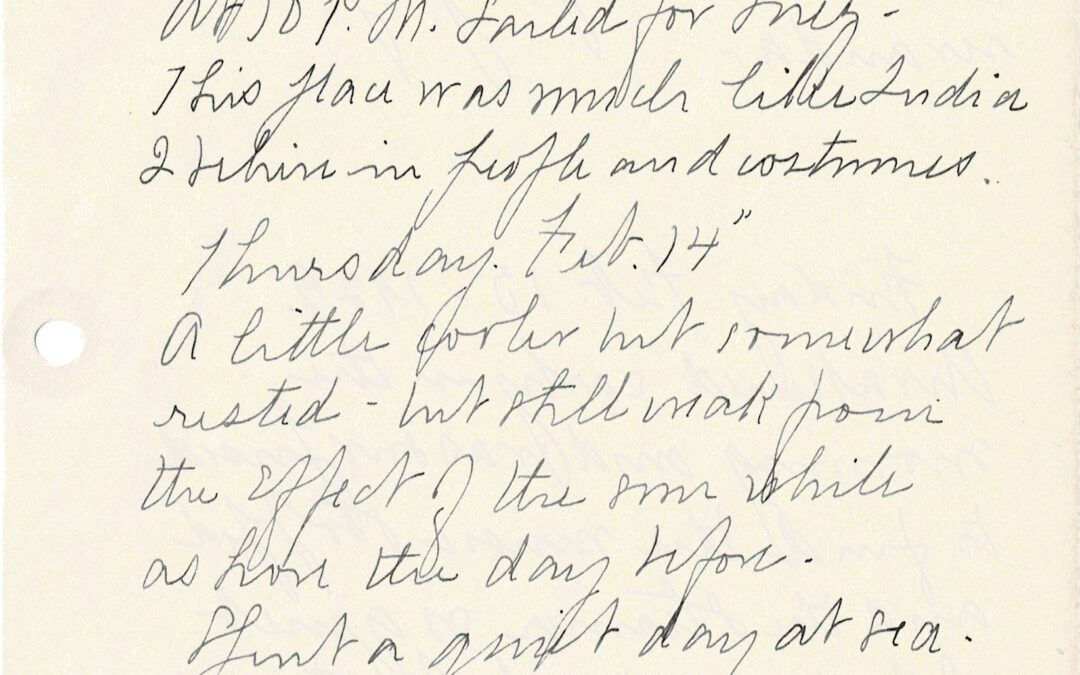 P. M. Sailed for Suez -
This place was much like India
I believe in people and costumes.
Thursday. Feb. 14"
A little cooler but somewhat
rested - but still weak from
the effect of the sun while
ashore the day before.
Spent a quiet day at sea.